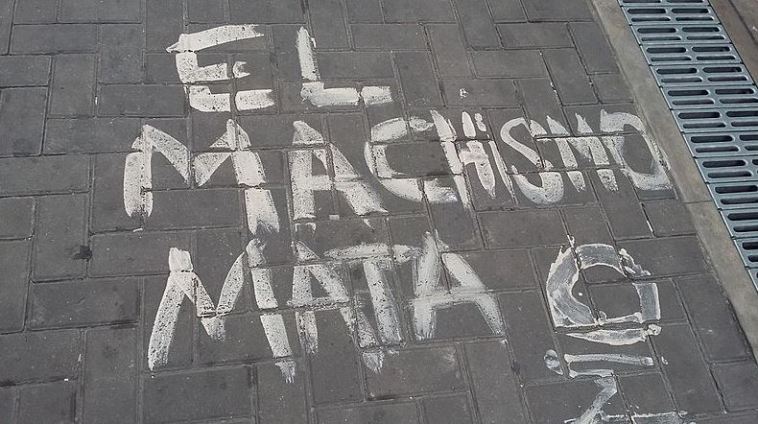 EL
MACHiSMO
MATA